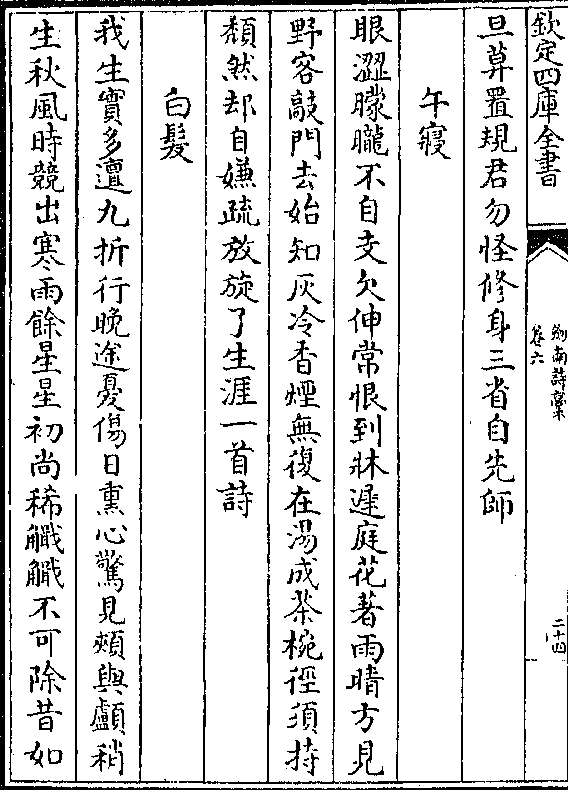 欽定四庫全書
劍南詩藁
卷六
二十四
旦莫置規君勿怪修身三省自先師
午寢
眼澀朦朧不自支欠伸常恨到牀遲庭花著雨晴方見
野客敲門去始知灰冷香煙無復在湯成茶椀徑須持
頹然却自嫌疏放旋了生涯一首詩
白髮
我生實多邅九折行晚途憂傷日熏心驚見頰與顱稍
生秋風時競出寒雨餘星星初尚稀觽觽不可除昔如